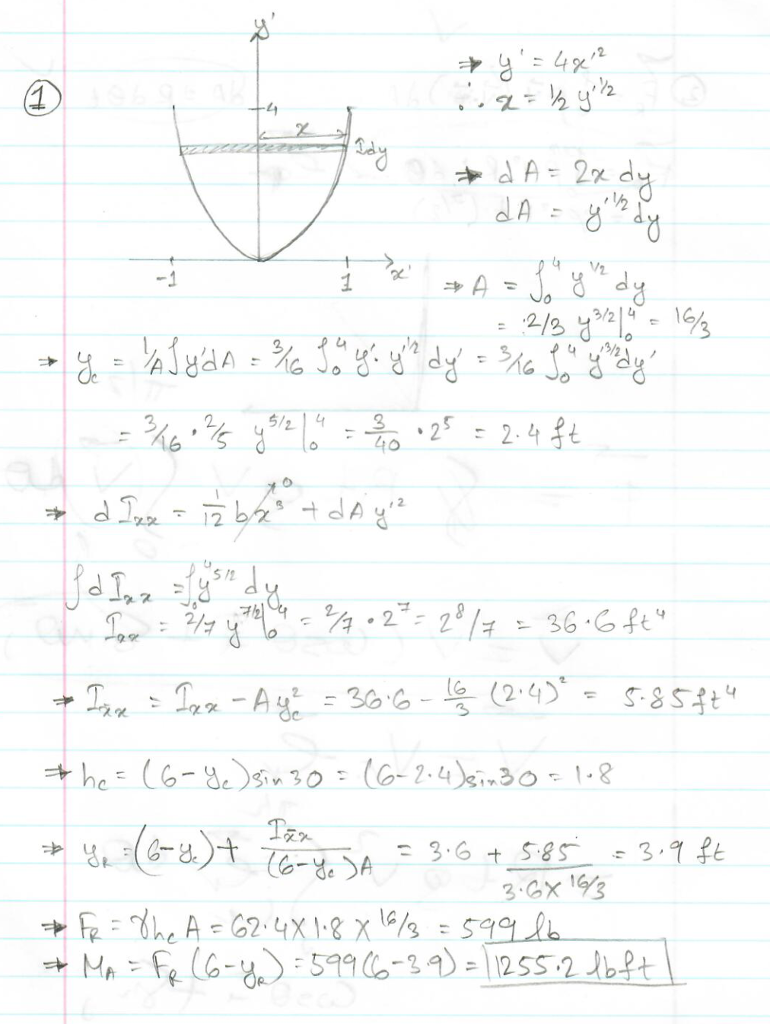 y'
①
⇒ y' = 4x'²
∴ x = 1/2 y'^1/2
4
x
Idy
⇒ dA = 2x dy
dA = y'^1/2 dy
-1
1
x'
⇒ A = ∫₀⁴ y^1/2 dy
= 2/3 y^3/2 |₀⁴ = 16/3
⇒ y_c = 1/A ∫y'dA = 3/16 ∫₀⁴ y'· y'^1/2 dy' = 3/16 ∫₀⁴ y'^3/2 dy'
= 3/16 · 2/5 y^5/2 |₀⁴ = 3/40 · 2⁵ = 2.4 ft
⇒ dI_xx = 1/12 b x³ → 0 + dA y'²
∫dI_xx = ∫₀⁴ y^5/2 dy
I_xx = 2/7 y^7/2 |₀⁴ = 2/7 · 2⁷ = 2⁸/7 = 36.6 ft⁴
⇒ I_x̄x = I_xx − A y_c² = 36.6 − 16/3 (2.4)² = 5.85 ft⁴
⇒ h_c = (6−y_c) sin 30 = (6−2.4) sin 30 = 1.8
⇒ y_R = (6−y_c) + I_x̄x / (6−y_c)A = 3.6 + 5.85 / 3.6 × 16/3 = 3.9 ft
⇒ F_R = γh_c A = 62.4 × 1.8 × 16/3 = 599 lb
⇒ M_A = F_R (6−y_R) = 599 (6−3.9) = 1255.2 lbft